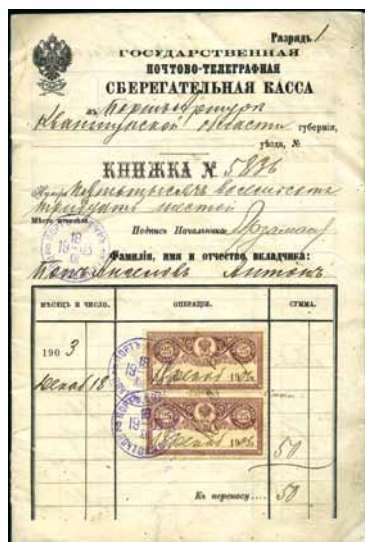 Разрядъ 1
ГОСУДАРСТВЕННАЯ
ПОЧТОВО-ТЕЛЕГРАФНАЯ
СБЕРЕГАТЕЛЬНАЯ КАССА
въ Портъ-Артурѣ
Квантунской области губерніи,
уѣзда, №
КНИЖКА № 5836
пять тысячъ восемьсотъ
тридцать шестой
Мѣсто штемпеля.
Подпись Начальника
Фамилія, имя и отчество вкладчика:
Антонъ
МѢСЯЦЪ И ЧИСЛО.
ОПЕРАЦІИ.
СУММА.
1903
Декаб 18
18 декаб 1903
18 декаб 1903
50
Къ переносу.... 50